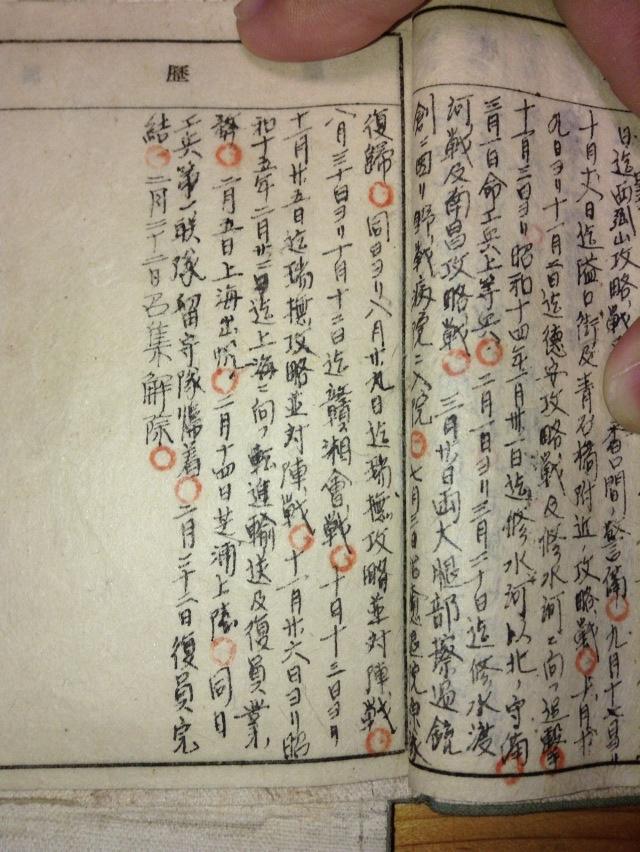 歴
日迄西孤山攻略ノ戦
香口間ノ警備 九月十七日ヨリ
十月廿八日迄隘口街及青石橋附近ノ攻略戦 十月廿
九日ヨリ十一月二日迄徳安攻略ノ戦及修水河ニ向フ追撃
十一月三日ヨリ昭和十四年一月卅一日迄修水河以北ノ守備
三月一日命工兵上等兵 二月一日ヨリ三月二十日迄修水渡
河ノ戦及南昌攻略ノ戦 三月廿日両大腿部擦過銃
創ニ因リ野戦病院ニ入院 七月三日治癒退院原隊
復帰 同日ヨリ八月廿九日迄瑞攻略並対陣ノ戦
八月三十日ヨリ十月十二日迄贛湘会戦 十月十三日ヨリ
十一月廿五日迄瑞攻略並対陣ノ戦 十一月廿六日ヨリ昭
和十五年二月廿三日迄上海ニ向フ転進輸送及復員業ム
二月五日上海出帆 二月十四日芝浦上陸 同日
工兵第一聯隊留守隊ヘ帰着 二月二十二日復員完
結 二月二十二日召集解除